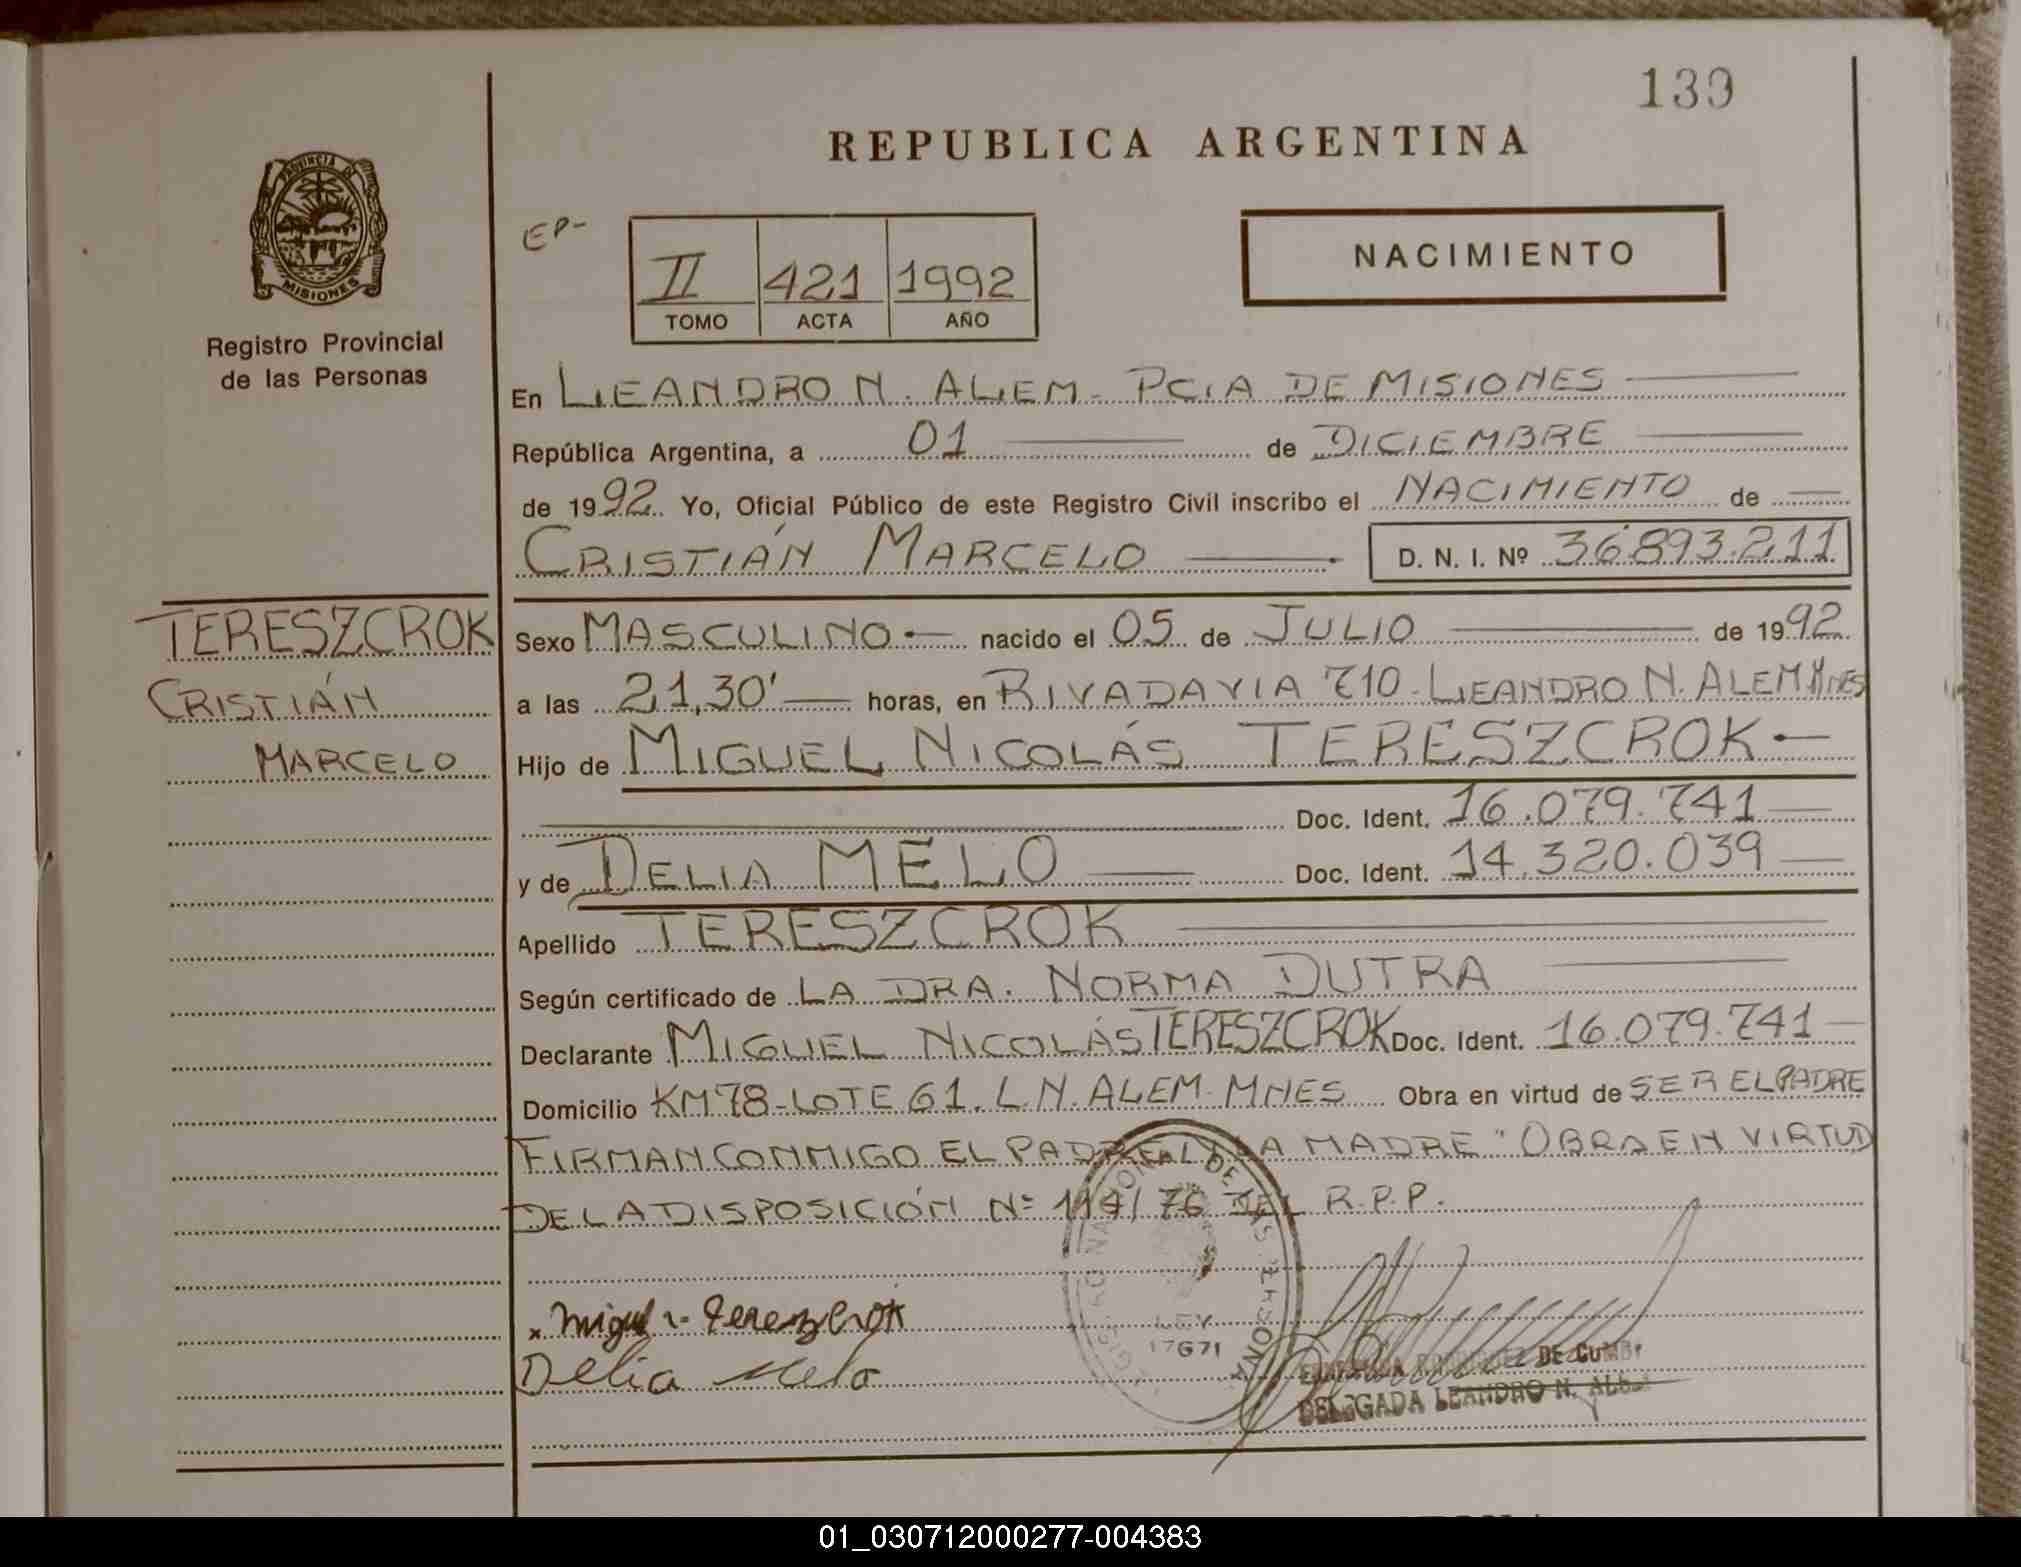 139
REPUBLICA ARGENTINA
PROVINCIA DE
MISIONES
Registro Provincial
de las Personas
EP-
II 421 1992
TOMO ACTA AÑO
NACIMIENTO
En LEANDRO N. ALEM - PCIA DE MISIONES
República Argentina, a 01 de DICIEMBRE
de 1992. Yo, Oficial Público de este Registro Civil inscribo el NACIMIENTO de
CRISTIÁN MARCELO D. N. I. Nº 36.893.211
TERESZCROK
CRISTIÁN
MARCELO
Sexo MASCULINO nacido el 05 de JULIO de 1992
a las 21,30' horas, en RIVADAVIA 710 - LEANDRO N. ALEM MNES
Hijo de MIGUEL NICOLÁS TERESZCROK
Doc. Ident. 16.079.741
y de DELIA MELO Doc. Ident. 14.320.039
Apellido TERESZCROK
Según certificado de LA DRA. NORMA DUTRA
Declarante MIGUEL NICOLÁS TERESZCROK Doc. Ident. 16.079.741
Domicilio KM 78 - LOTE 61. L.N. ALEM - MNES Obra en virtud de SER EL PADRE
FIRMAN CONMIGO EL PADRE Y LA MADRE "OBRA EN VIRTUD
DE LA DISPOSICIÓN Nº 114/76 DEL R.P.P.
LEY
17671
Delia Melo
DE
DELEGADA LEANDRO N. ALEM
01_030712000277-004383